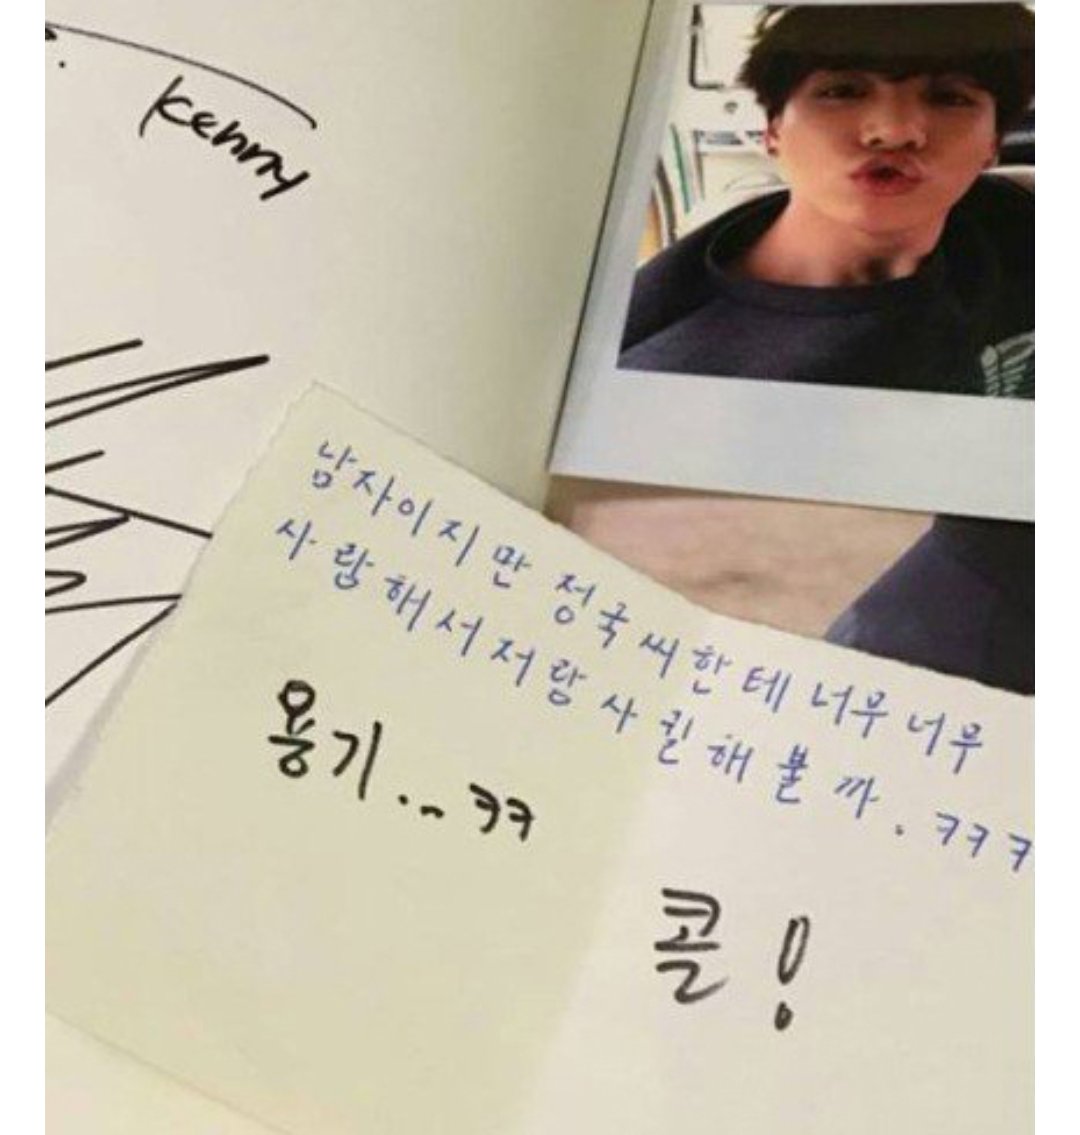 Kenny
남자이지만 정국씨한테 너무너무
사람해서 저람 사퀼해 볼까. ㅋㅋㅋ
용기..~ ㅋㅋ
콜!